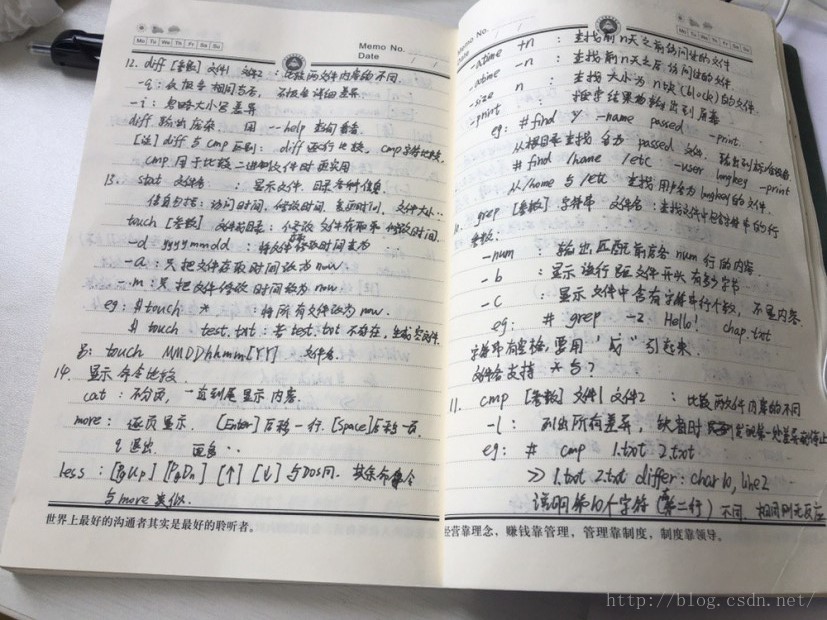 Mo Tu We Th Fr Sa Su
Memo No.
Date / /
12. diff [参数] 文件1 文件2 : 比较两文件内容的不同
-q : 仅报告相同与否, 不报告详细差异.
-i : 忽略大小写差异
diff 输出 用 --help 查看
[注] diff 与 cmp 区别: diff 逐行比较, cmp 字符比较.
cmp 用于比较二进制文件时更实用
13. stat 文件名 : 显示文件、目录各种信息
信息包括: 访问时间, 修改时间, 时间, 文件大小..
touch [参数] 文件或目录: 修改文件存取和修改时间.
-d yyyymmdd : 将文件修改时间末为
-a : 只把文件存取时间改为now
-m : 只把文件修改时间改为now
eg: # touch * : 将所有文件改为now.
# touch test.txt : 若 test.txt 不存在, 生成空文件.
另: touch MMDDhhmm[YY] 文件名.
14. 显示命令比较
cat : 不分页, 一直到尾显示内容.
more : 逐页显示. [Enter]后移一行. [Space]后移一页,
q 退出.
less : [PgUp] [PgDn] [↑] [↓] 与DOS同. 其余命令
与more类似.
世界上最好的沟通者其实是最好的聆听者。
Memo No.
Date / /
Mo Tu We Th Fr Sa Su
-atime +n : 查找前n天之前访问过的文件
-atime -n : 查找前n天之后访问过的文件.
-size n : 查找大小为n块(block)的文件.
-print : 结果输出到屏幕
eg: # find / -name passed -print
从根目录查找名为 passed 文件. 输出到标准设备
# find /home /etc -user -print
从/home 与 /etc 查找用户名为 的文件.
grep [参数] 字符串 文件名 : 查找文件中包含字符串的行
参数:
-num : 输出匹配前后各 num 行的内容.
-b : 显示该行距文件开头有多少字节
-c : 显示文件中含有字符串行个数, 不显内容.
eg: # grep -2 Hello! chap.txt
字符串有空格, 要用 ' 或 " 引起来.
文件名支持 * 与 ?
11. cmp [参数] 文件1 文件2 : 比较两文件内容的不同
-l : 列出所有差异, 缺省时发现第一处差异即停止
eg: # cmp 1.txt 2.txt
>> 1.txt 2.txt differ: char 10, line 2
说明第10个字符(第二行)不同. 相同则无反应
经营靠理念,赚钱靠管理,管理靠制度,制度靠领导。
http://blog.csdn.net/